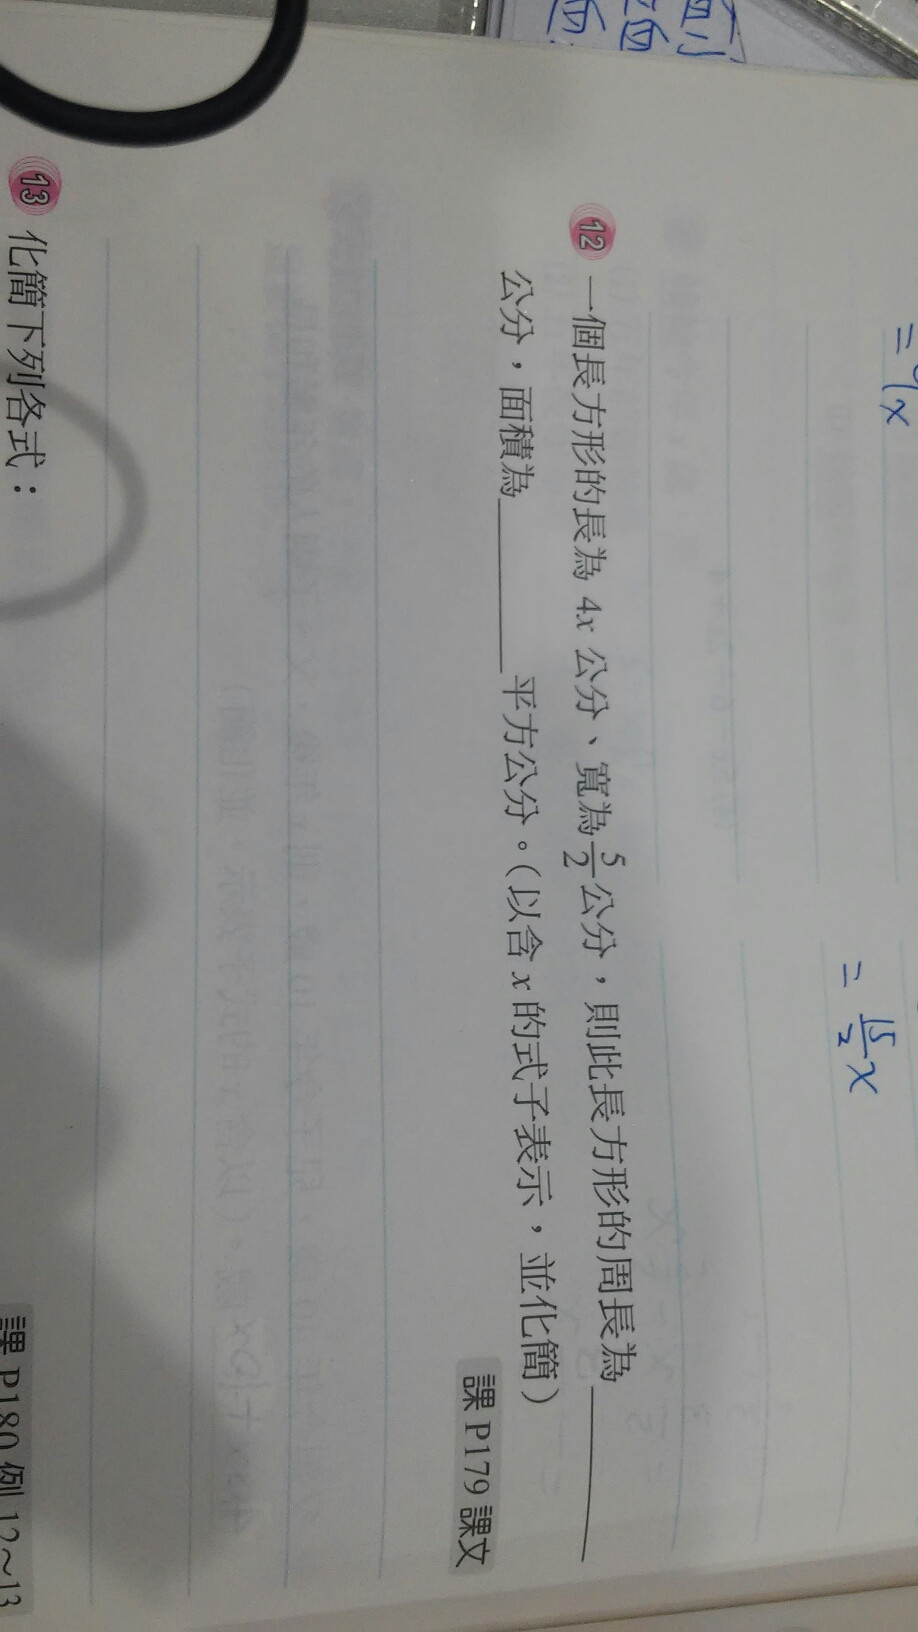 四小
面
面
= 
x
= 15/2 x
12 一個長方形的長為 4x 公分、寬為 5/2 公分，則此長方形的周長為________
公分，面積為________平方公分。（以含 x 的式子表示，並化簡）
課 P179 課文
13 化簡下列各式：
課 P180 例 12～13